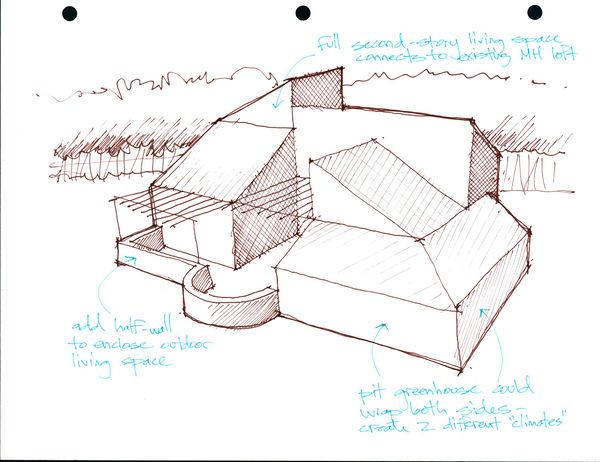 full second-story living space
connects to existing MH loft
add half-wall
to enclose outdoor
living space
pit greenhouse could
wrap both sides—
create 2 different "climates"